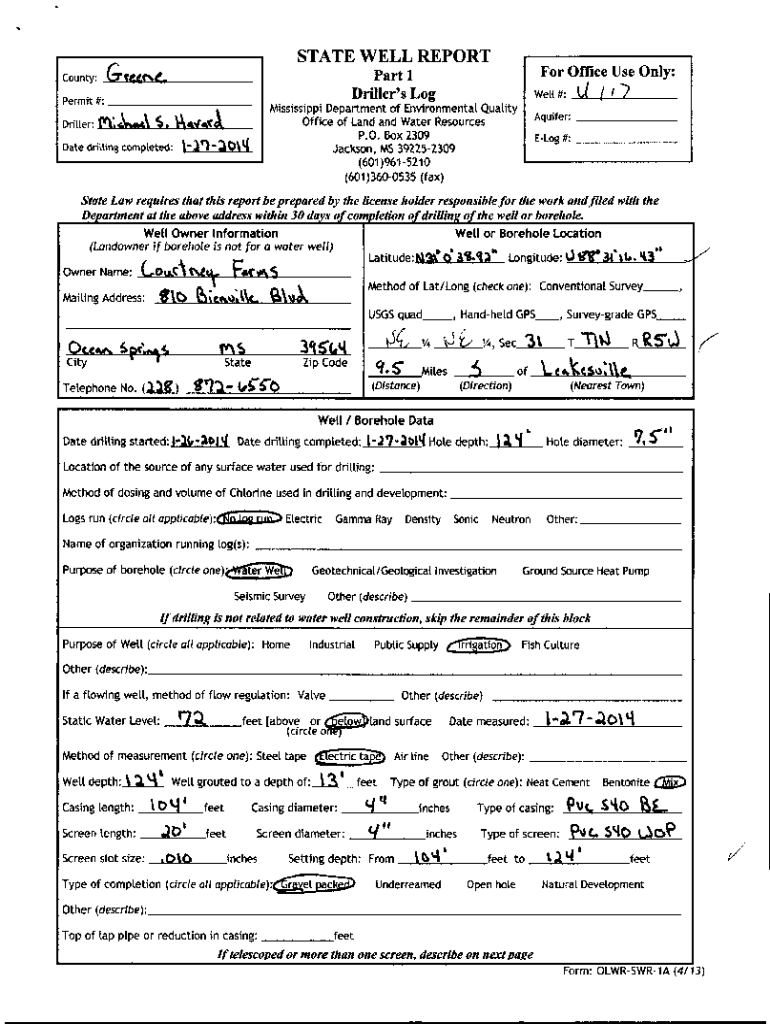 STATE WELL REPORT
Part 1
Driller's Log
Mississippi Department of Environmental Quality
Office of Land and Water Resources
P.O. Box 2309
Jackson, MS 39225-2309
(601)961-5210
(601)360-0535 (fax)
County: Greene
Permit #:
Driller: Michael S. Havard
Date drilling completed: 1-27-2014
For Office Use Only:
Well #: U 117
Aquifer:
E-Log #:
State Law requires that this report be prepared by the license holder responsible for the work and filed with the
Department at the above address within 30 days of completion of drilling of the well or borehole.
Well Owner Information
(Landowner if borehole is not for a water well)
Owner Name: Courtney Farms
Mailing Address: 810 Bienville Blvd
Ocean Springs MS 39564
City State Zip Code
Telephone No. (228) 872-6550
Well or Borehole Location
Latitude: N31° 0' 38.92" Longitude: W88° 31' 16.43"
Method of Lat/Long (check one): Conventional Survey ,
USGS quad , Hand-held GPS , Survey-grade GPS
NE ¼ NE ¼, Sec 31 T T1N R R5W
9.5 Miles S of Leakesville
(Distance) (Direction) (Nearest Town)
Well / Borehole Data
Date drilling started: 1-26-2014 Date drilling completed: 1-27-2014 Hole depth: 124' Hole diameter: 7.5"
Location of the source of any surface water used for drilling:
Method of dosing and volume of Chlorine used in drilling and development:
Logs run (circle all applicable): No log run Electric Gamma Ray Density Sonic Neutron Other:
Name of organization running log(s):
Purpose of borehole (circle one): Water Well Geotechnical/Geological Investigation Ground Source Heat Pump
Seismic Survey Other (describe)
If drilling is not related to water well construction, skip the remainder of this block
Purpose of Well (circle all applicable): Home Industrial Public Supply Irrigation Fish Culture
Other (describe):
If a flowing well, method of flow regulation: Valve Other (describe)
Static Water Level: 72 feet [above or below] land surface Date measured: 1-27-2014
(circle one)
Method of measurement (circle one): Steel tape Electric tape Air line Other (describe):
Well depth: 124' Well grouted to a depth of: 13' feet Type of grout (circle one): Neat Cement Bentonite Mix
Casing length: 104' feet Casing diameter: 4" inches Type of casing: Pvc S40 BE
Screen length: 20' feet Screen diameter: 4" inches Type of screen: Pvc S40 WOP
Screen slot size: .010 inches Setting depth: From 104' feet to 124' feet
Type of completion (circle all applicable): Gravel packed Underreamed Open hole Natural Development
Other (describe):
Top of lap pipe or reduction in casing: feet
If telescoped or more than one screen, describe on next page
Form: OLWR-SWR-1A (4/13)